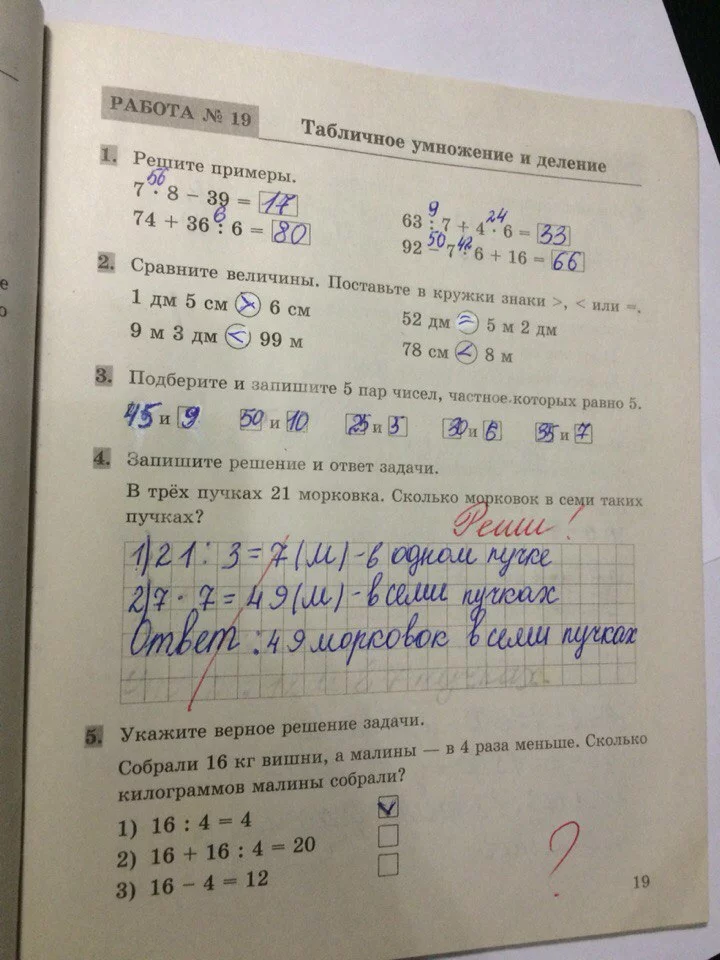 РАБОТА № 19
Табличное умножение и деление
1. Решите примеры.
56
7 · 8 − 39 = 17
6
74 + 36 : 6 = 80
9 24
63 : 7 + 4 · 6 = 33
50 42
92 − 7 · 6 + 16 = 66
2. Сравните величины. Поставьте в кружки знаки >, < или =.
1 дм 5 см > 6 см
52 дм = 5 м 2 дм
9 м 3 дм < 99 м
78 см < 8 м
3. Подберите и запишите 5 пар чисел, частное которых равно 5.
45 и 9 50 и 10 25 и 5 30 и 6 35 и 7
4. Запишите решение и ответ задачи.
В трёх пучках 21 морковка. Сколько морковок в семи таких
пучках?
Реши!
1) 21 : 3 = 7 (м) - в одном пучке
2) 7 · 7 = 49 (м) - в семи пучках
Ответ : 49 морковок в семи пучках
5. Укажите верное решение задачи.
Собрали 16 кг вишни, а малины — в 4 раза меньше. Сколько
килограммов малины собрали?
1) 16 : 4 = 4
2) 16 + 16 : 4 = 20
3) 16 − 4 = 12
?
19